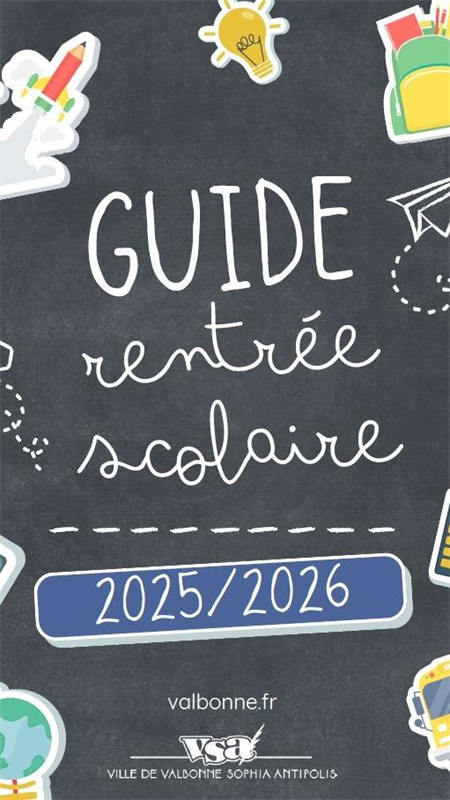 GUIDE
rentrée
scolaire
2025/2026
valbonne.fr
vsa
VILLE DE VALBONNE SOPHIA ANTIPOLIS